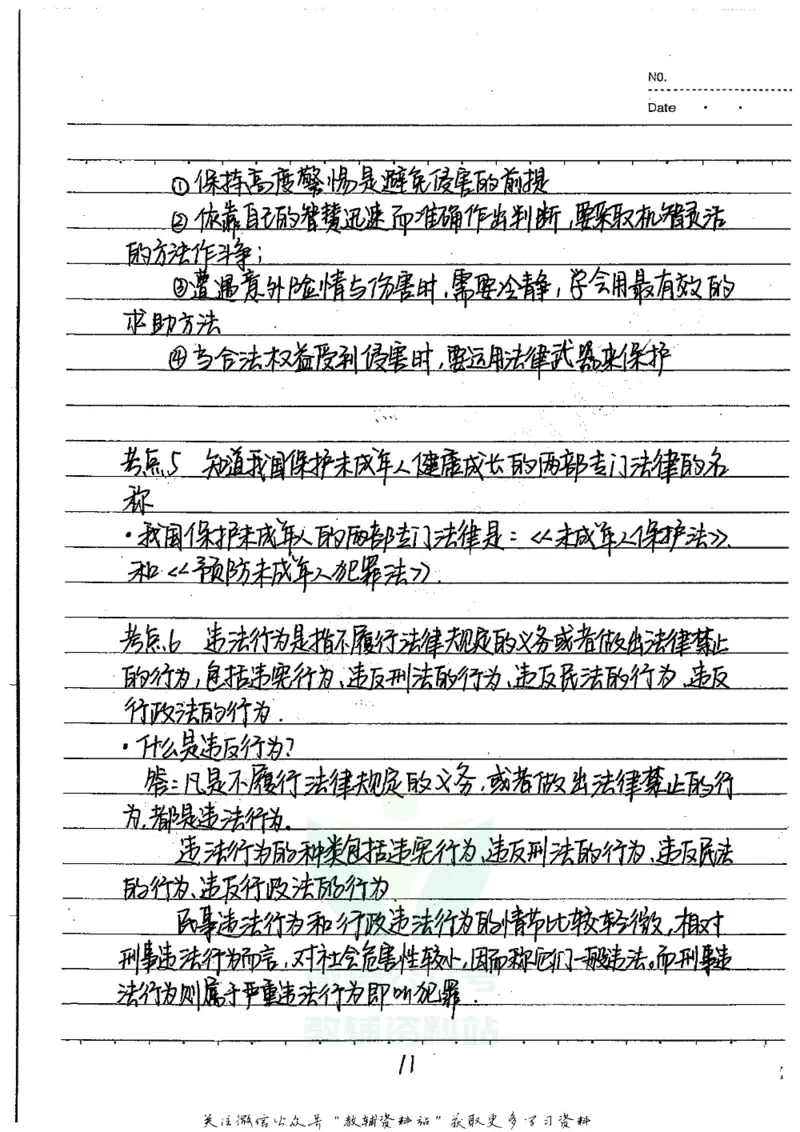 NO.
Date
①保持高度警惕是避免侵害的前提
②依靠自己的智慧迅速而准确作出判断,要采取机智灵活
的方法作斗争;
③遭遇意外险情与伤害时,需要冷静,学会用最有效的
求助方法
④当合法权益受到侵害时,要运用法律武器来保护
考点5 知道我国保护未成年人健康成长的两部专门法律的名
称
·我国保护未成年人的两部专门法律是:《未成年人保护法》
和《预防未成年人犯罪法》.
考点6 违法行为是指不履行法律规定的义务或者做出法律禁止
的行为,包括违宪行为、违反刑法的行为、违反民法的行为、违反
行政法的行为.
·什么是违反行为?
答:凡是不履行法律规定的义务,或者做出法律禁止的行
为,都是违法行为.
违法行为的种类包括违宪行为、违反刑法的行为、违反民法
的行为、违反行政法的行为
民事违法行为和行政违法行为的情节比较轻微,相对
刑事违法行为而言,对社会危害性较小,因而称它们一般违法。而刑事违
法行为则属于严重违法行为即叫犯罪.
教辅资料站
11
关注微信公众号"教辅资料站"获取更多学习资料